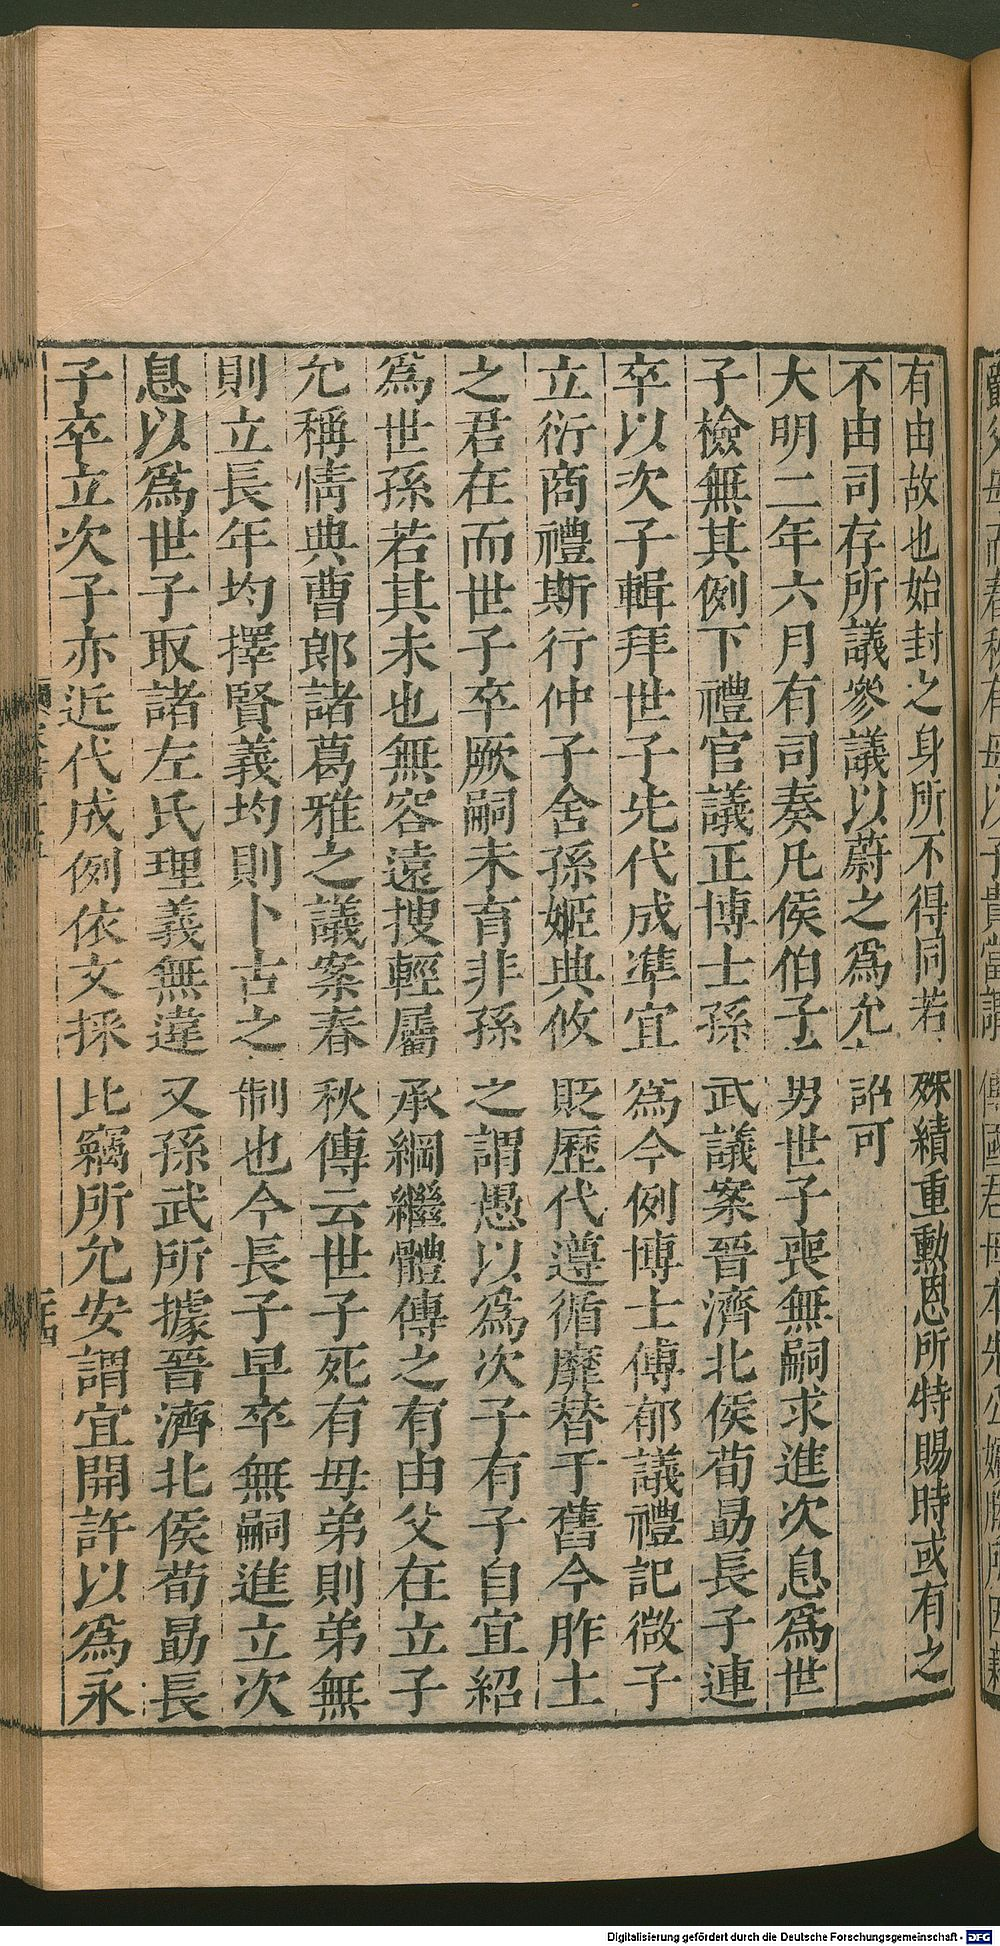 有由故也始封之身所不得同若殊績重勳恩所特賜時或有之
不由司存所議參議以蔚之爲允詔可
大明二年六月有司奏凡侯伯子男世子喪無嗣求進次息爲世
子檢無其例下禮官議正博士孫武議案晉濟北侯荀勗長子連
卒以次子輯拜世子先代成準宜爲今例博士傅郁議禮記微子
立衍商禮斯行仲子舍孫姬典攸貶歷代遵循靡替于舊今胙土
之君在而世子卒厥嗣未育非孫之謂愚以爲次子有子自宜紹
爲世孫若其未也無容遠搜輕屬承綱繼體傳之有由父在立子
允稱情典曹郎諸葛雅之議案春秋傳云世子死有母弟則弟無
則立長年均擇賢義均則卜古之制也今長子早卒無嗣進立次
息以爲世子取諸左氏理義無違又孫武所據晉濟北侯荀勗長
子卒立次子亦近代成例依文採比竊所允安謂宜開許以爲永
Digitalisierung gefördert durch die Deutsche Forschungsgemeinschaft - DFG